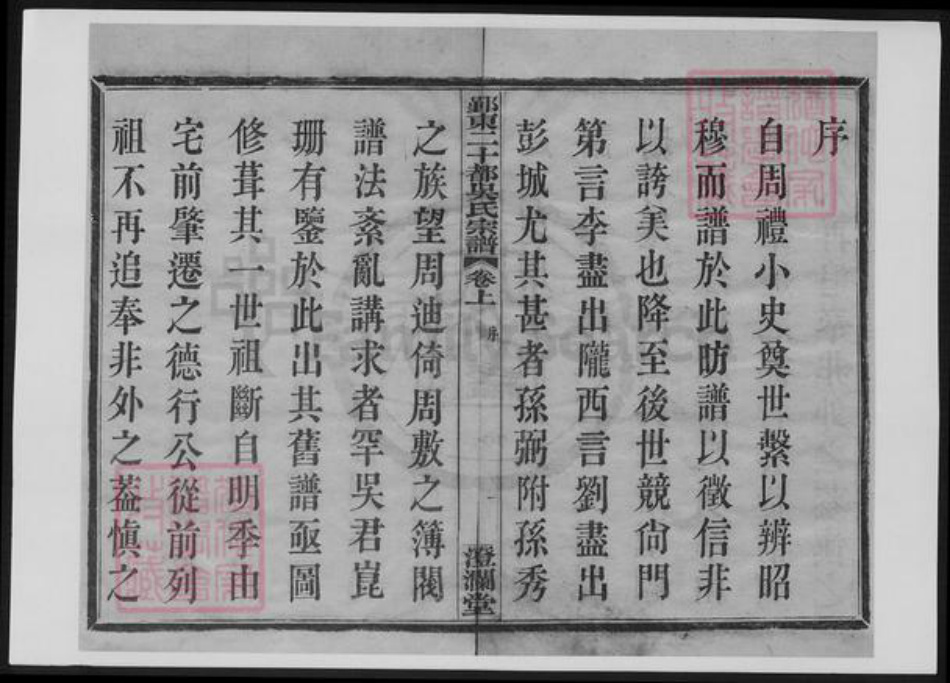 序
自周禮小史奠世繫以辨昭
穆而譜於此昉譜以徵信非
以誇矣也降至後世競尙門
第言李盡出隴西言劉盡出
彭城尤其甚者孫弼附孫秀
鄞東二十都吳氏宗譜
卷上
序
澄瀾堂
之族望周迪倚周敷之簿閥
譜法紊亂講求者罕吳君崑
珊有鑒於此出其舊譜亟圖
修葺其一世祖斷自明季由
宅前肇遷之德行公從前列
祖不再追奉非外之蓋慎之